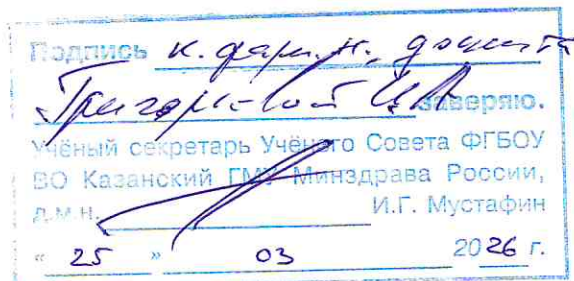 Подпись к.фарм.н., доцента
заверяю.
Учёный секретарь Учёного Совета ФГБОУ
ВО Казанский ГМУ Минздрава России,
д.м.н. И.Г. Мустафин
« 25 » 03 2026 г.